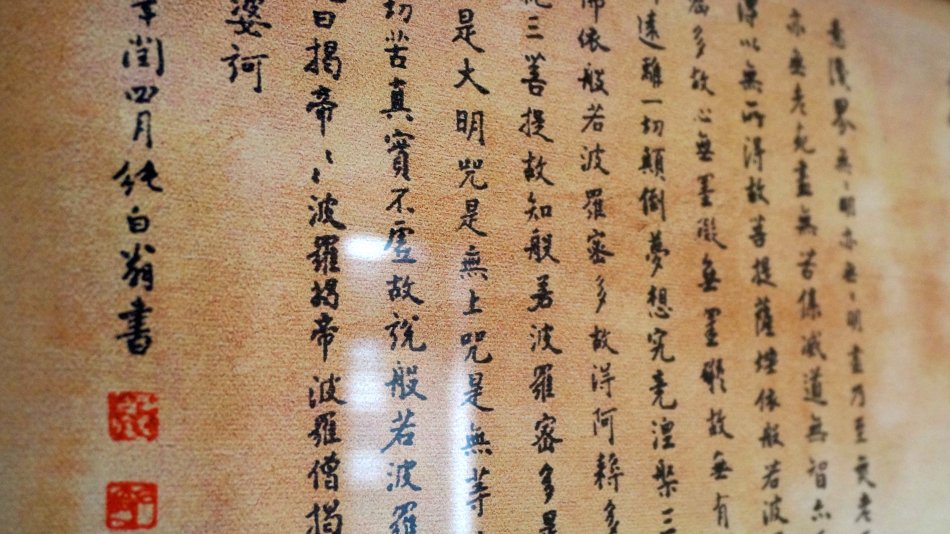 意識界無〻明亦無〻明盡乃至無老
亦無老死盡無苦集滅道無智亦
得以無所得故菩提薩埵依般若波
多故心無罣礙無罣礙故無有
遠離一切顛倒夢想究竟涅槃三
依般若波羅蜜多故得阿耨多
三菩提故知般若波羅蜜多是
是大明咒是無上咒是無等
切苦真實不虛故說般若波羅
曰揭帝〻波羅揭帝波羅僧揭
婆訶
閏四月純白翁書